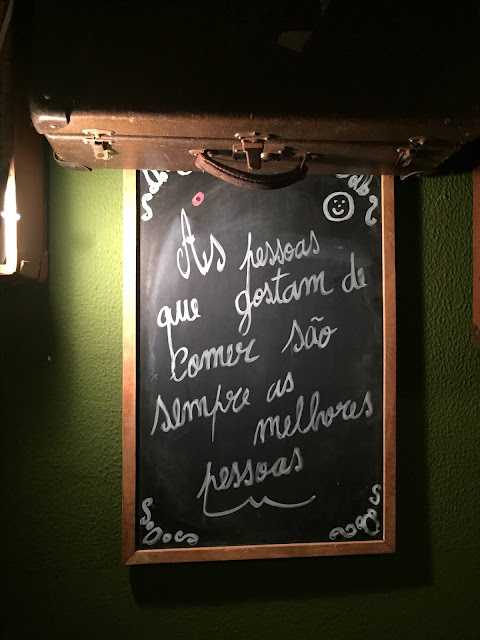 As pessoas
que gostam de
comer são
sempre as
melhores
pessoas